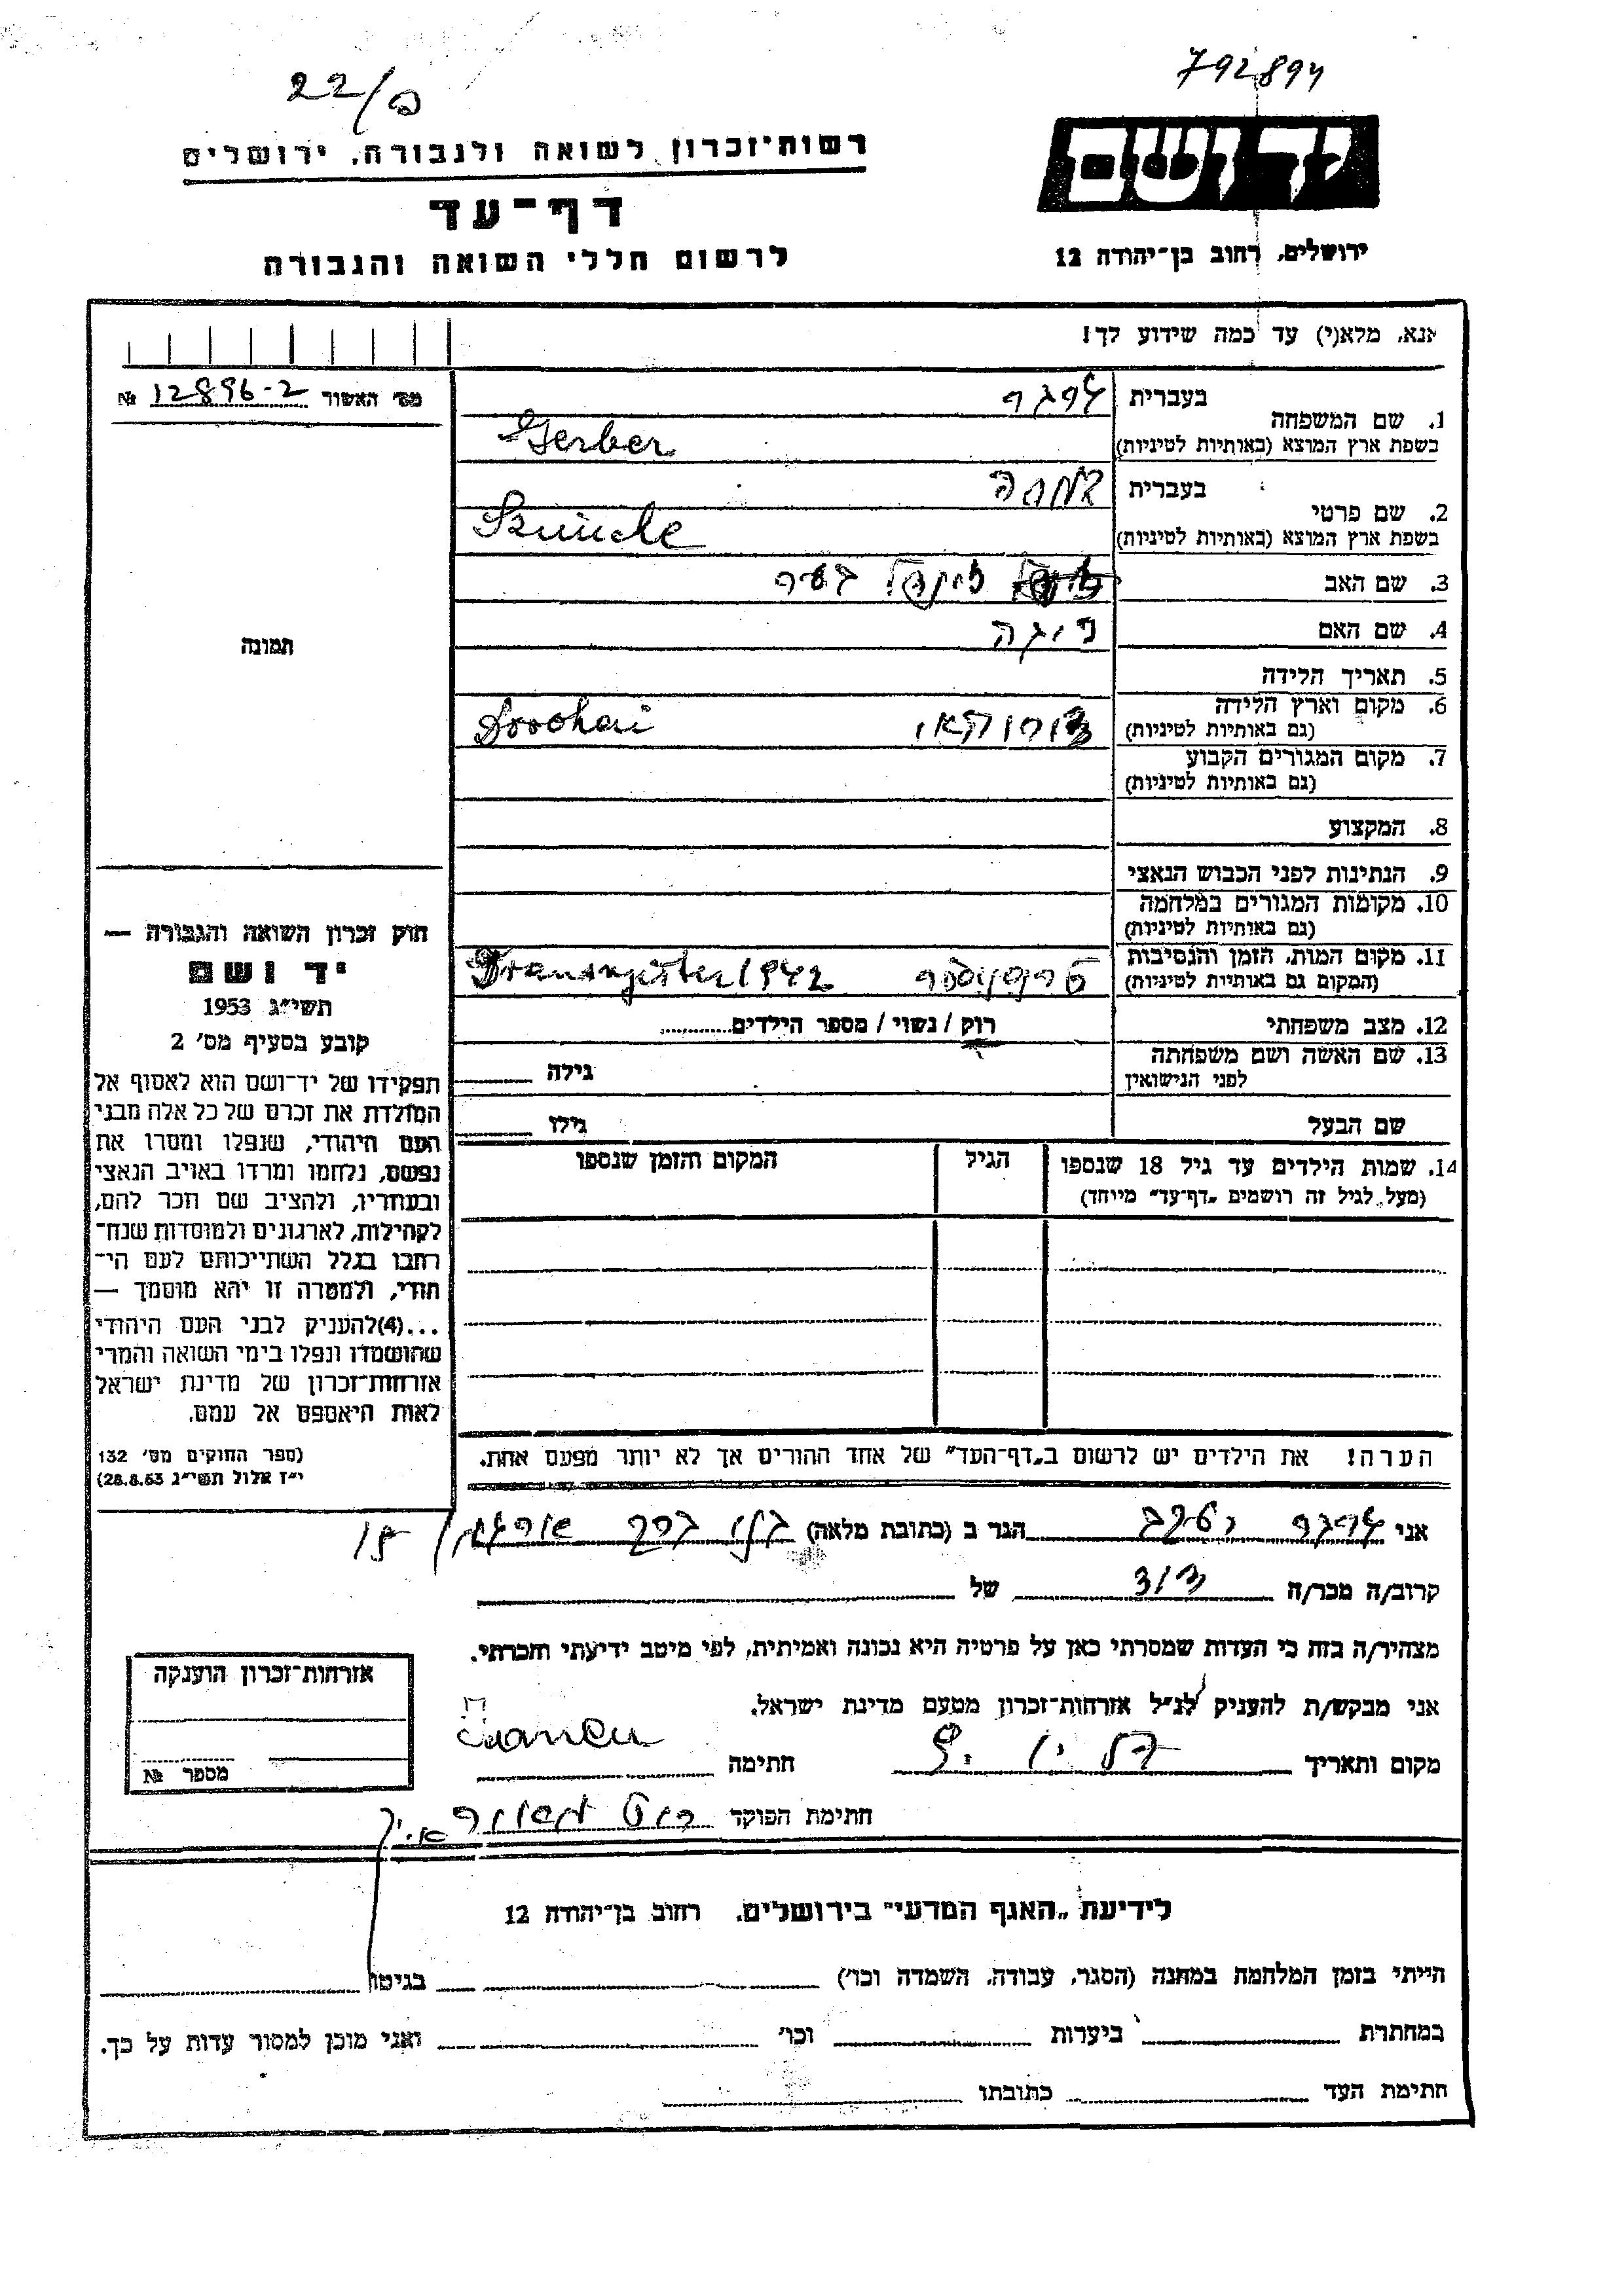 792894
22/ס
יד ושם
רשות־זכרון לשואה ולגבורה, ירושלים
דף־עד
לרשום חללי השואה והגבורה
ירושלים, רחוב בן־יהודה 12
אנא, מלא(י) עד כמה שידוע לך!
מס׳ האשור 12896-2 №
1. שם המשפחה
בעברית
בשפת ארץ המוצא (באותיות לטיניות) Gerber
2. שם פרטי
בעברית שמחה
בשפת ארץ המוצא (באותיות לטיניות)
3. שם האב
4. שם האם
5. תאריך הלידה
6. מקום וארץ הלידה
(גם באותיות לטיניות)
7. מקום המגורים הקבוע
(גם באותיות לטיניות)
8. המקצוע
9. הנתינות לפני הכבוש הנאצי
10. מקומות המגורים במלחמה
(גם באותיות לטיניות)
11. מקום המות, הזמן והנסיבות
(המקום גם באותיות לטיניות) 1942
12. מצב משפחתי רוק / נשוי / מספר הילדים
13. שם האשה ושם משפחתה
לפני הנישואין גילה
שם הבעל גילו
14. שמות הילדים עד גיל 18 שנספו
(מעל לגיל זה רושמים „דף־עד״ מייחד)
הגיל
המקום והזמן שנספו
הערה! את הילדים יש לרשום ב„דף־העד״ של אחד ההורים אך לא יותר מפעם אחת.
תמונה
חוק זכרון השואה והגבורה —
יד ושם
תשי״ג 1953
קובע בסעיף מס׳ 2
תפקידו של יד־ושם הוא לאסוף אל
המולדת את זכרם של כל אלה מבני
העם היהודי, שנפלו ומסרו את
נפשם, נלחמו ומרדו באויב הנאצי
ובעוזריו, ולהציב שם וזכר להם,
לקהילות, לארגונים ולמוסדות שנח־
רבו בגלל השתייכותם לעם הי־
הודי, ולמטרה זו יהא מוסמך —
...(4)להעניק לבני העם היהודי
שהושמדו ונפלו בימי השואה והמרי
אזרחות־זכרון של מדינת ישראל
לאות היאספם אל עמם.
(ספר החוקים מס׳ 132
י״ז אלול תשי״ג 28.8.53)
אני הגר ב (כתובת מלאה)
קרוב/ה מכר/ה דוד של
מצהיר/ה בזה כי העדות שמסרתי כאן על פרטיה היא נכונה ואמיתית, לפי מיטב ידיעתי והכרתי.
אני מבקש/ת להעניק לנ״ל אזרחות־זכרון מטעם מדינת ישראל.
מקום ותאריך חתימה
חתימת הפוקד
אזרחות־זכרון הוענקה
מספר №
לידיעת „האגף המדעי״ בירושלים, רחוב בן־יהודה 12
הייתי בזמן המלחמה במחנה (הסגר, עבודה, השמדה וכו׳) בגיטו
במחתרת ביערות וכו׳ ואני מוכן למסור עדות על כך.
חתימת העד כתובתו